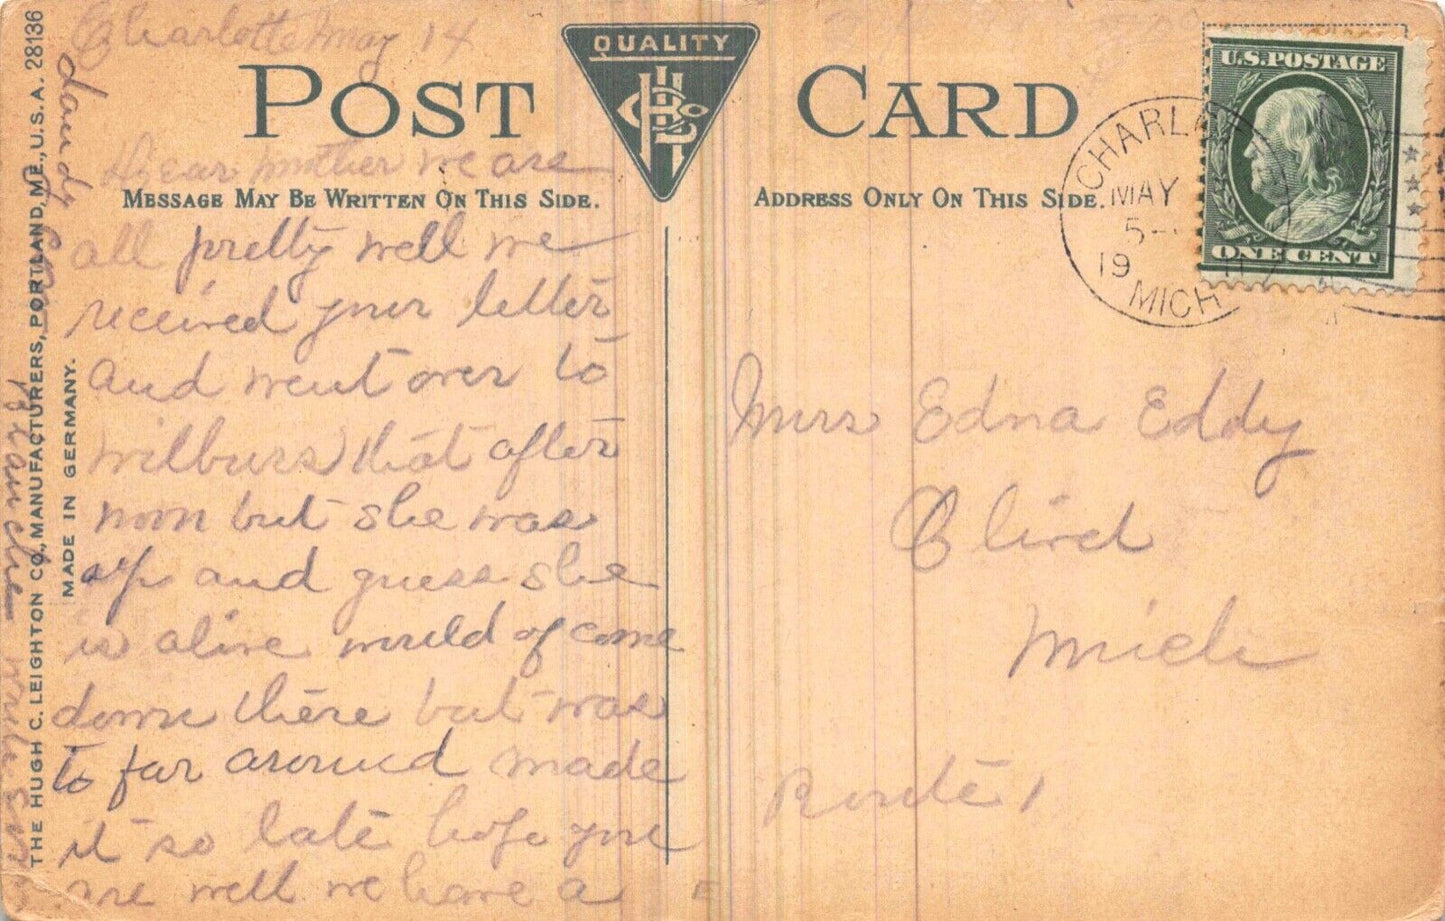 Charlotte May 14
QUALITY
POST CARD
Dear mother we are
MESSAGE MAY BE WRITTEN ON THIS SIDE.
all pretty well we
received your letter
and went over to
Wilburs that after
noon but she was
up and guess she
is alive would of come
down there but was
to far around made
it so late hope you
are well we have a
dandy
THE HUGH C. LEIGHTON CO., MANUFACTURERS, PORTLAND, ME., U.S.A. 28136
MADE IN GERMANY.
Blanche write
ADDRESS ONLY ON THIS SIDE.
CHARL
MAY
5-
19 11
MICH
U.S. POSTAGE
ONE CENT
Mrs Edna Eddy
Olivet
Mich
Route 1